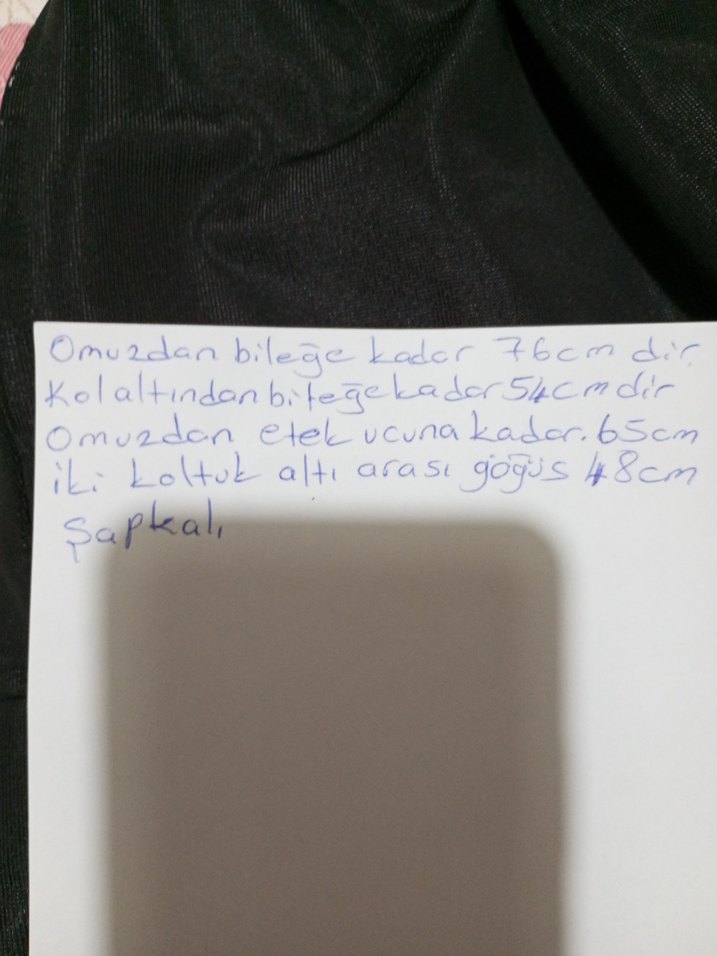 Omuzdan bileğe kadar 76cm dir
Kolaltından bileğe kadar 54cm dir
Omuzdan etek ucuna kadar. 65cm
iki koltuk altı arası göğüs 48cm
Şapkalı